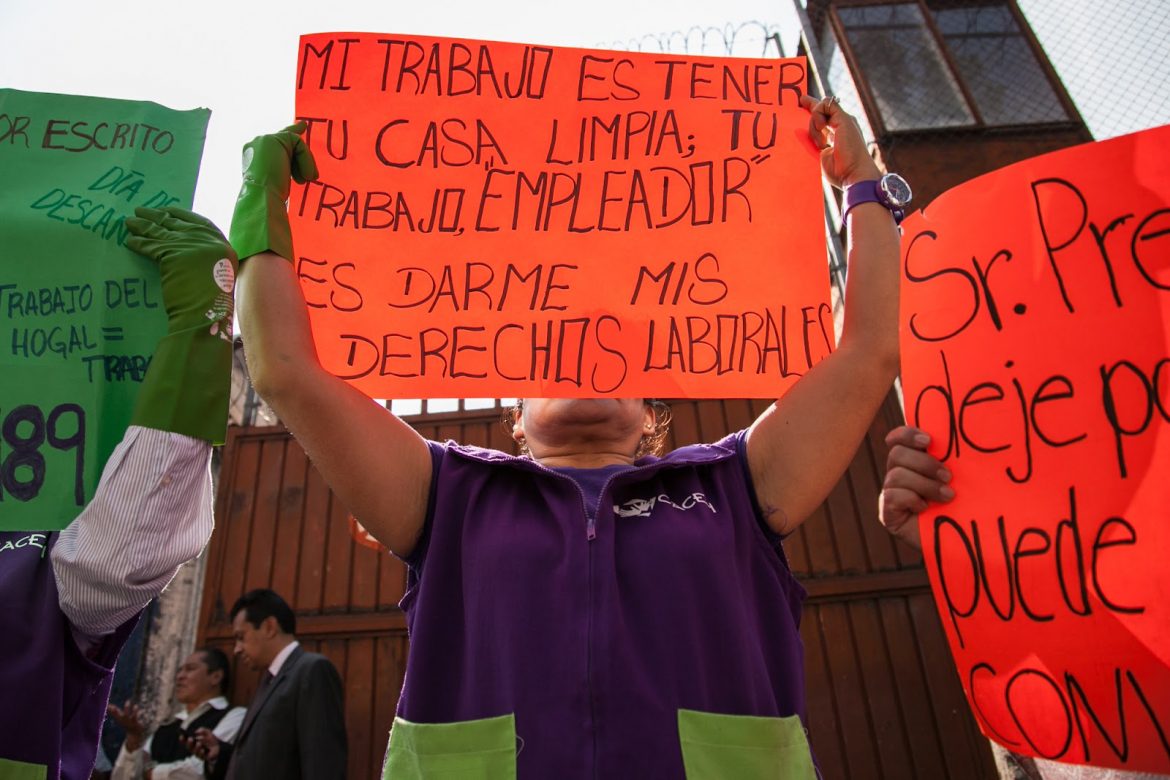 OR ESCRITO
DÍA DE
DESCANS
TRABAJO DEL
HOGAL =
TRABA
189
MI TRABAJO ES TENER
TU CASA LIMPIA; TU
TRABAJO, "EMPLEADOR"
ES DARME MIS
DERECHOS LABORALES
Sr. Pre
deje po
puede
CONV